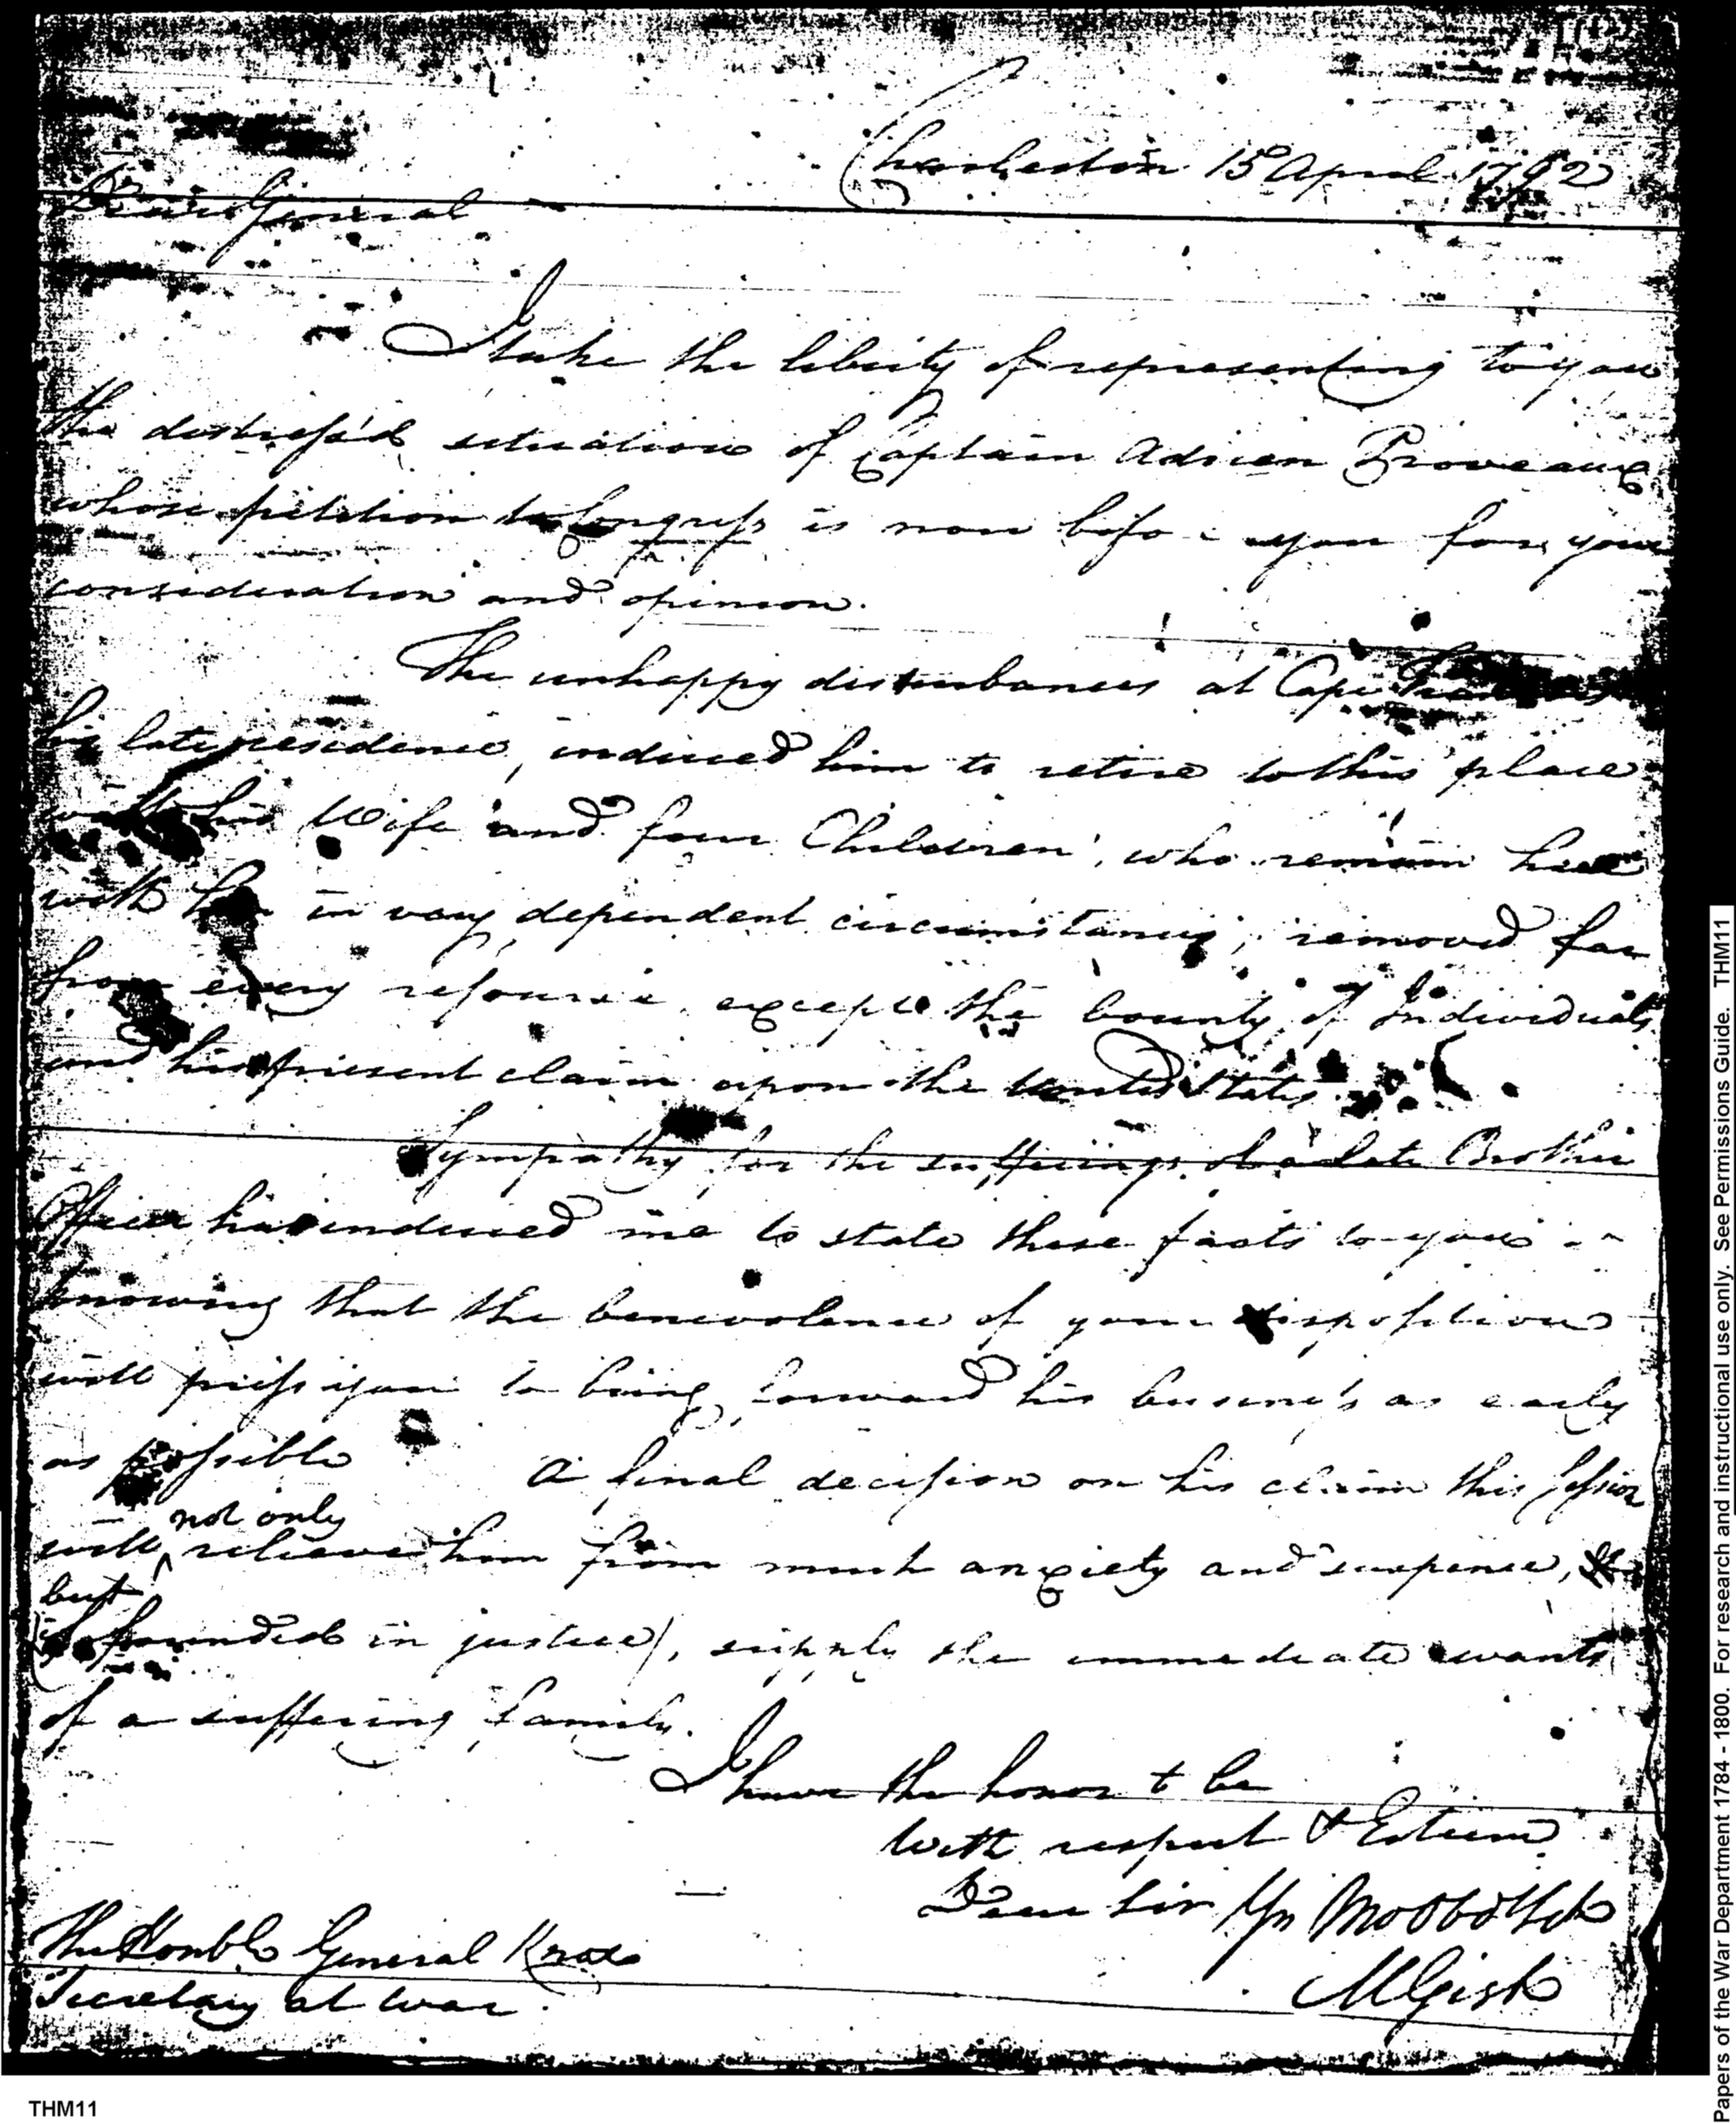 Charleston 15 April 1792
Dear General
I take the liberty of representing to you
the distress'd situation of Captain Adrien Proveaux
whose petition to Congress is now before you for your
consideration and opinion.
The unhappy disturbances at Cape
his late residence, induced him to retire to this place
with his Wife and four Children, who remain here
with him in very dependent circumstances, removed far
from every resource, except the bounty of Individuals
and his present claim upon the United States.
Sympathy for the sufferings of a late Brother
Officer has induced me to state these facts to you
knowing that the benevolence of your disposition
will press you to bring forward his business as early
as possible A final decision on his claim this Session
not only
will relieve him from much anxiety and suspence,
but
(if founded in justice), supply the immediate wants
of a suffering family.
I have the honor to be
With respect & Esteem
Dear Sir Yr Mo Ob Hb
The Honble General Knox
MGist
Secretary at War
Papers of the War Department 1784 - 1800. For research and instructional use only. See Permissions Guide. THM11
THM11